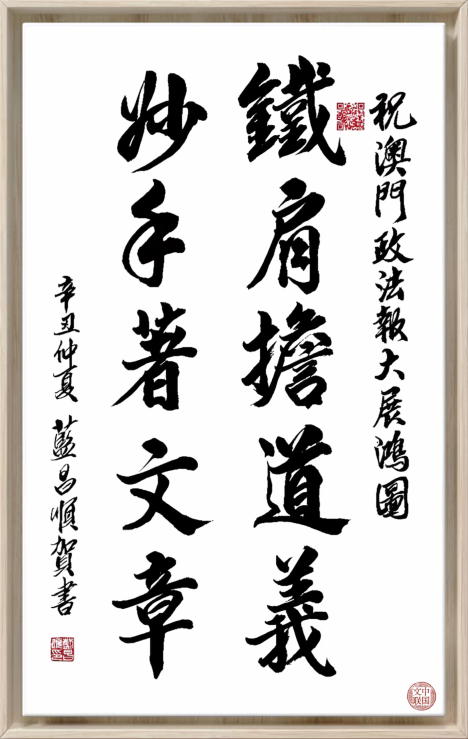 祝澳門政法報大展鴻圖
鐵肩擔道義
妙手著文章
辛丑仲夏 藍昌順賀書
中国文联